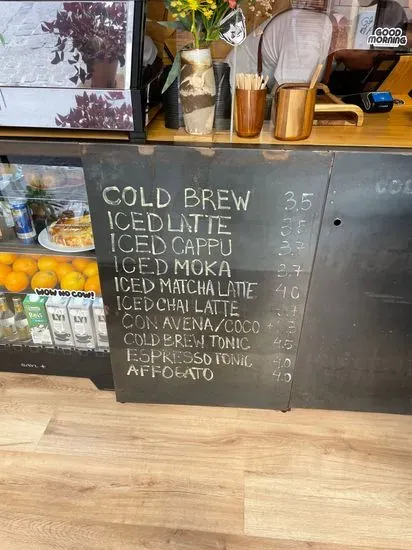 GOOD
MORNING
COLD BREW 3.5
ICED LATTE 3.5
ICED CAPPU 3.7
ICED MOKA 3.7
ICED MATCHA LATTE 4.0
ICED CHAI LATTE
CON AVENA/COCO
COLD BREW TONIC 4.5
ESPRESSO TONIC 4.0
AFFOGATO 4.0
WOW NO COW!